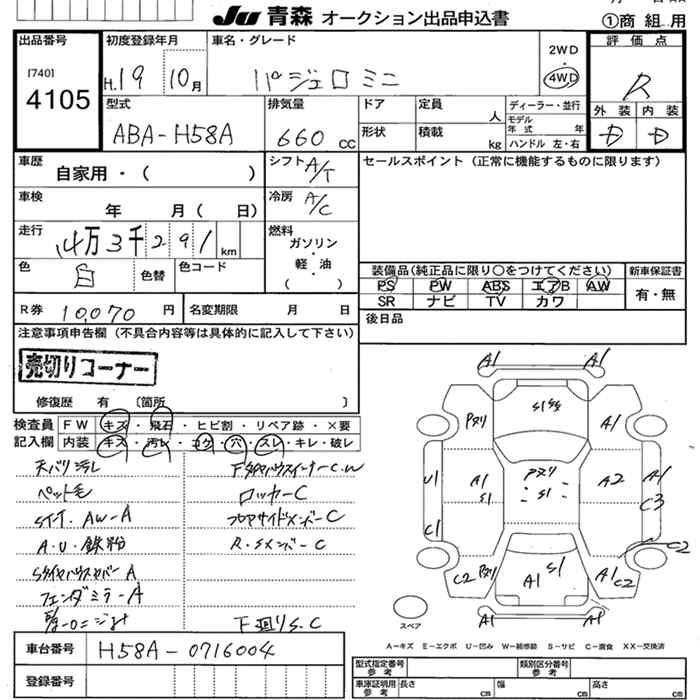 Ju 青森 オークション出品申込書
①商 組 用
出品番号
[740]
4105
初度登録年月
H.19 10月
車名・グレード
パジェロミニ
2WD
4WD
評価点
R
外装 内装
D D
型式
ABA-H58A
排気量
660 cc
ドア
定員 人
ディーラー・並行
モデル年式 年
形状
積載 kg
ハンドル 左・右
車歴
自家用・( )
シフト A/T
セールスポイント (正常に機能するものに限ります)
車検
年 月( 日)
冷房 A/C
走行
14万3千291km
燃料
ガソリン
・
軽・油
( )
色 白 色替
色コード
装備品(純正品に限り○をつけてください)
新車保証書
PS PW ABS エアB AW
有・無
SR ナビ TV カワ
R券 10,070 円
名変期限 月 日
後日品
注意事項申告欄(不具合内容等は具体的に記入して下さい)
売切りコーナー
修復歴 有 〔箇所 〕
検査員記入欄
FW キズ・飛石・ヒビ割・リペア跡・×要
内装 キズ・汚レ・コゲ・穴・スレ・キレ・破レ
天バリ汚レ
ペット毛
ST-T. AW-A
A・U・鉄粉
SタイヤハウスカバーA
フェンダミラーA
下タイヤハウスインナーC.W
ロッカーC
フロアサイドメンバーC
R.SメンバーC
下廻りS.C
A1 A1
Pヌリ S1 SS A1
U1 A1 S1 Pヌリ S1 A2 A1 C3
C1 C2
C2 Pヌリ A1 S1 A1 C2
A1 A1
スペア
A-キズ E-エクボ U-凹み W-補修跡 S-サビ C-腐食 XX-交換済
車台番号
H58A-0716004
型式指定番号 参考
類別区分番号 参考
車庫証明用 参考
長さ cm 幅 cm 高さ cm